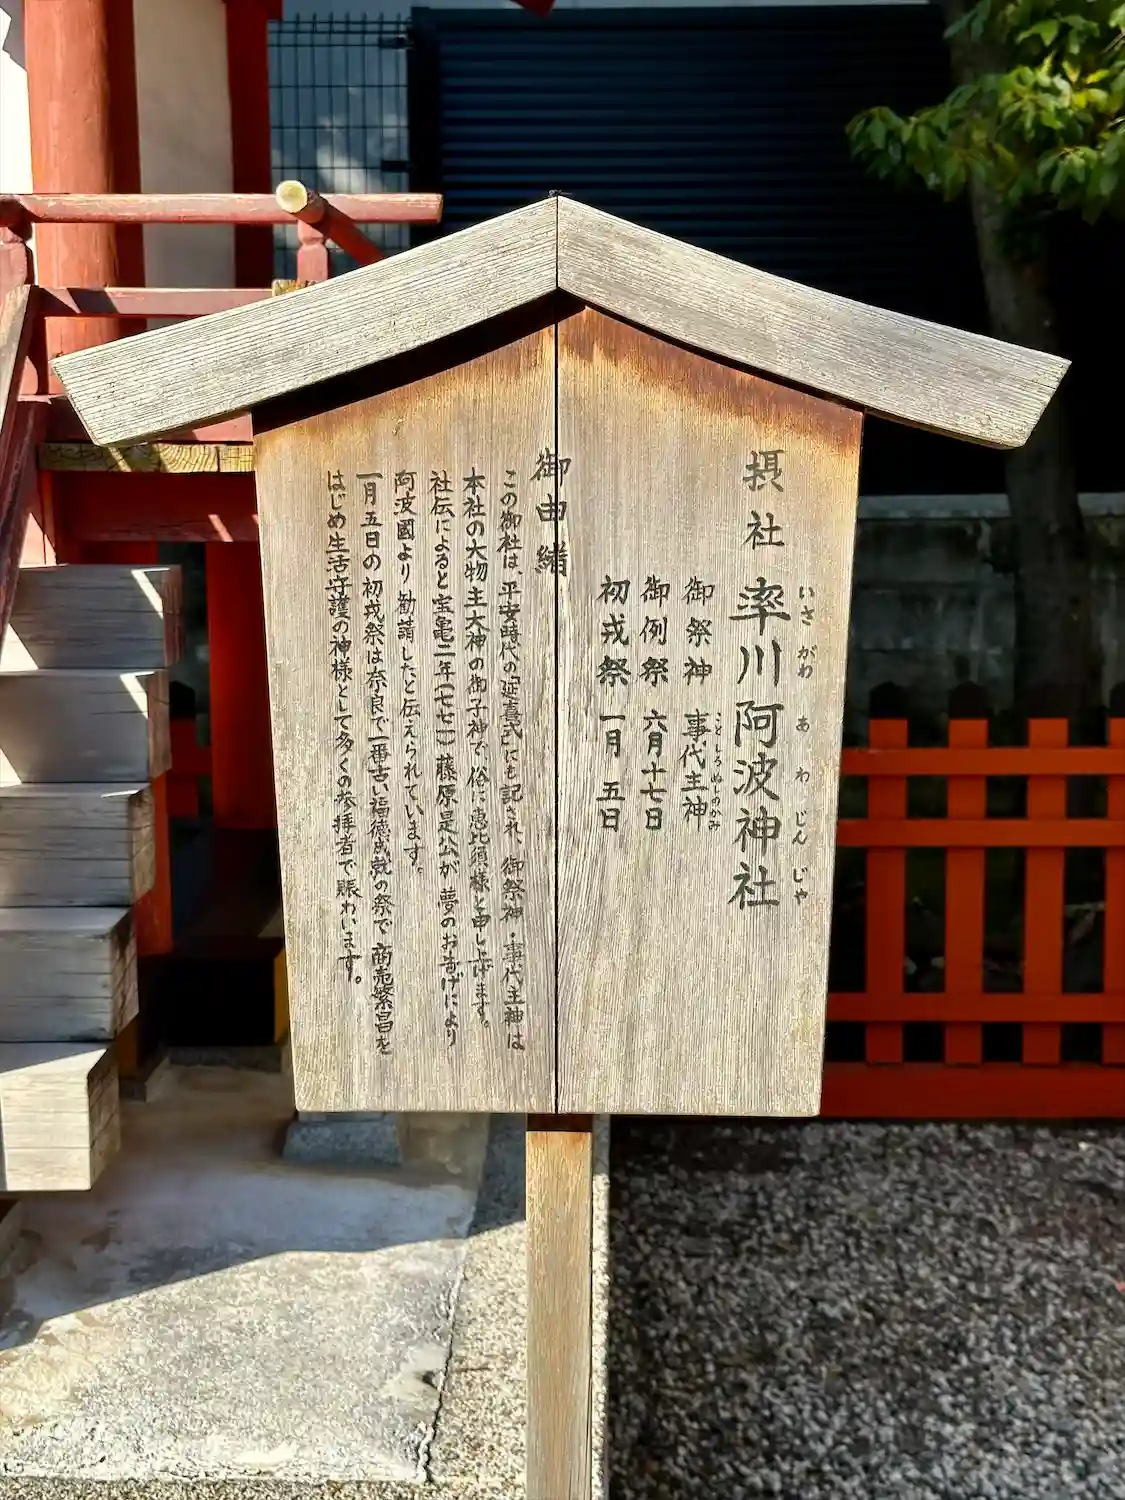 摂社 率川阿波神社
いさ がわ あ わ じん じゃ
御祭神 事代主神
ことしろぬしのかみ
御例祭 六月十七日
初戎祭 一月 五日
御由緒
この御社は、平安時代の「延喜式」にも記され、御祭神・事代主神は
本社の大物主大神の御子神で、俗に恵比須様と申し上げます。
社伝によると宝亀二年(七七一)藤原是公が 夢のお告げにより
阿波國より勧請したと伝えられています。
一月五日の初戎祭は奈良で一番古い福徳成就の祭で 商売繁昌を
はじめ生活守護の神様として多くの参拝者で賑わいます。